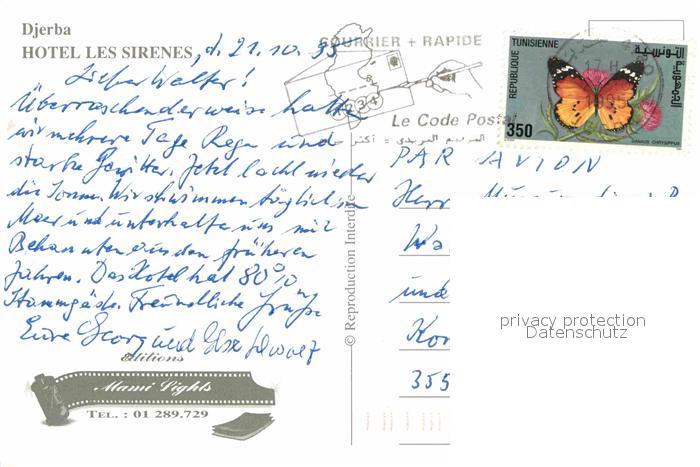 Djerba
HOTEL LES SIRENES, d. 21.10.93
Lieber Walter!
Überraschenderweise hatten
wir mehrere Tage Regen und
starke Gewitter. Jetzt lacht wieder
die Sonne. Wir schwimmen täglich im
Meer und unterhalten uns mit
Bekannten aus den früheren
Jahren. Das Hotel hat 80%
Stammgäste. Freundliche Grüße
Eure Georg und Else
éditions
Mami Lights
TEL. : 01 289.729
© Reproduction Interdite
COURRIER + RAPIDE
Le Code Postal
REPUBLIQUE TUNISIENNE
الجمهورية التونسية
350
DANAUS CHRYSIPPUS
PAR AVION
Herr
Wa
und
Kor
355
privacy protection
Datenschutz